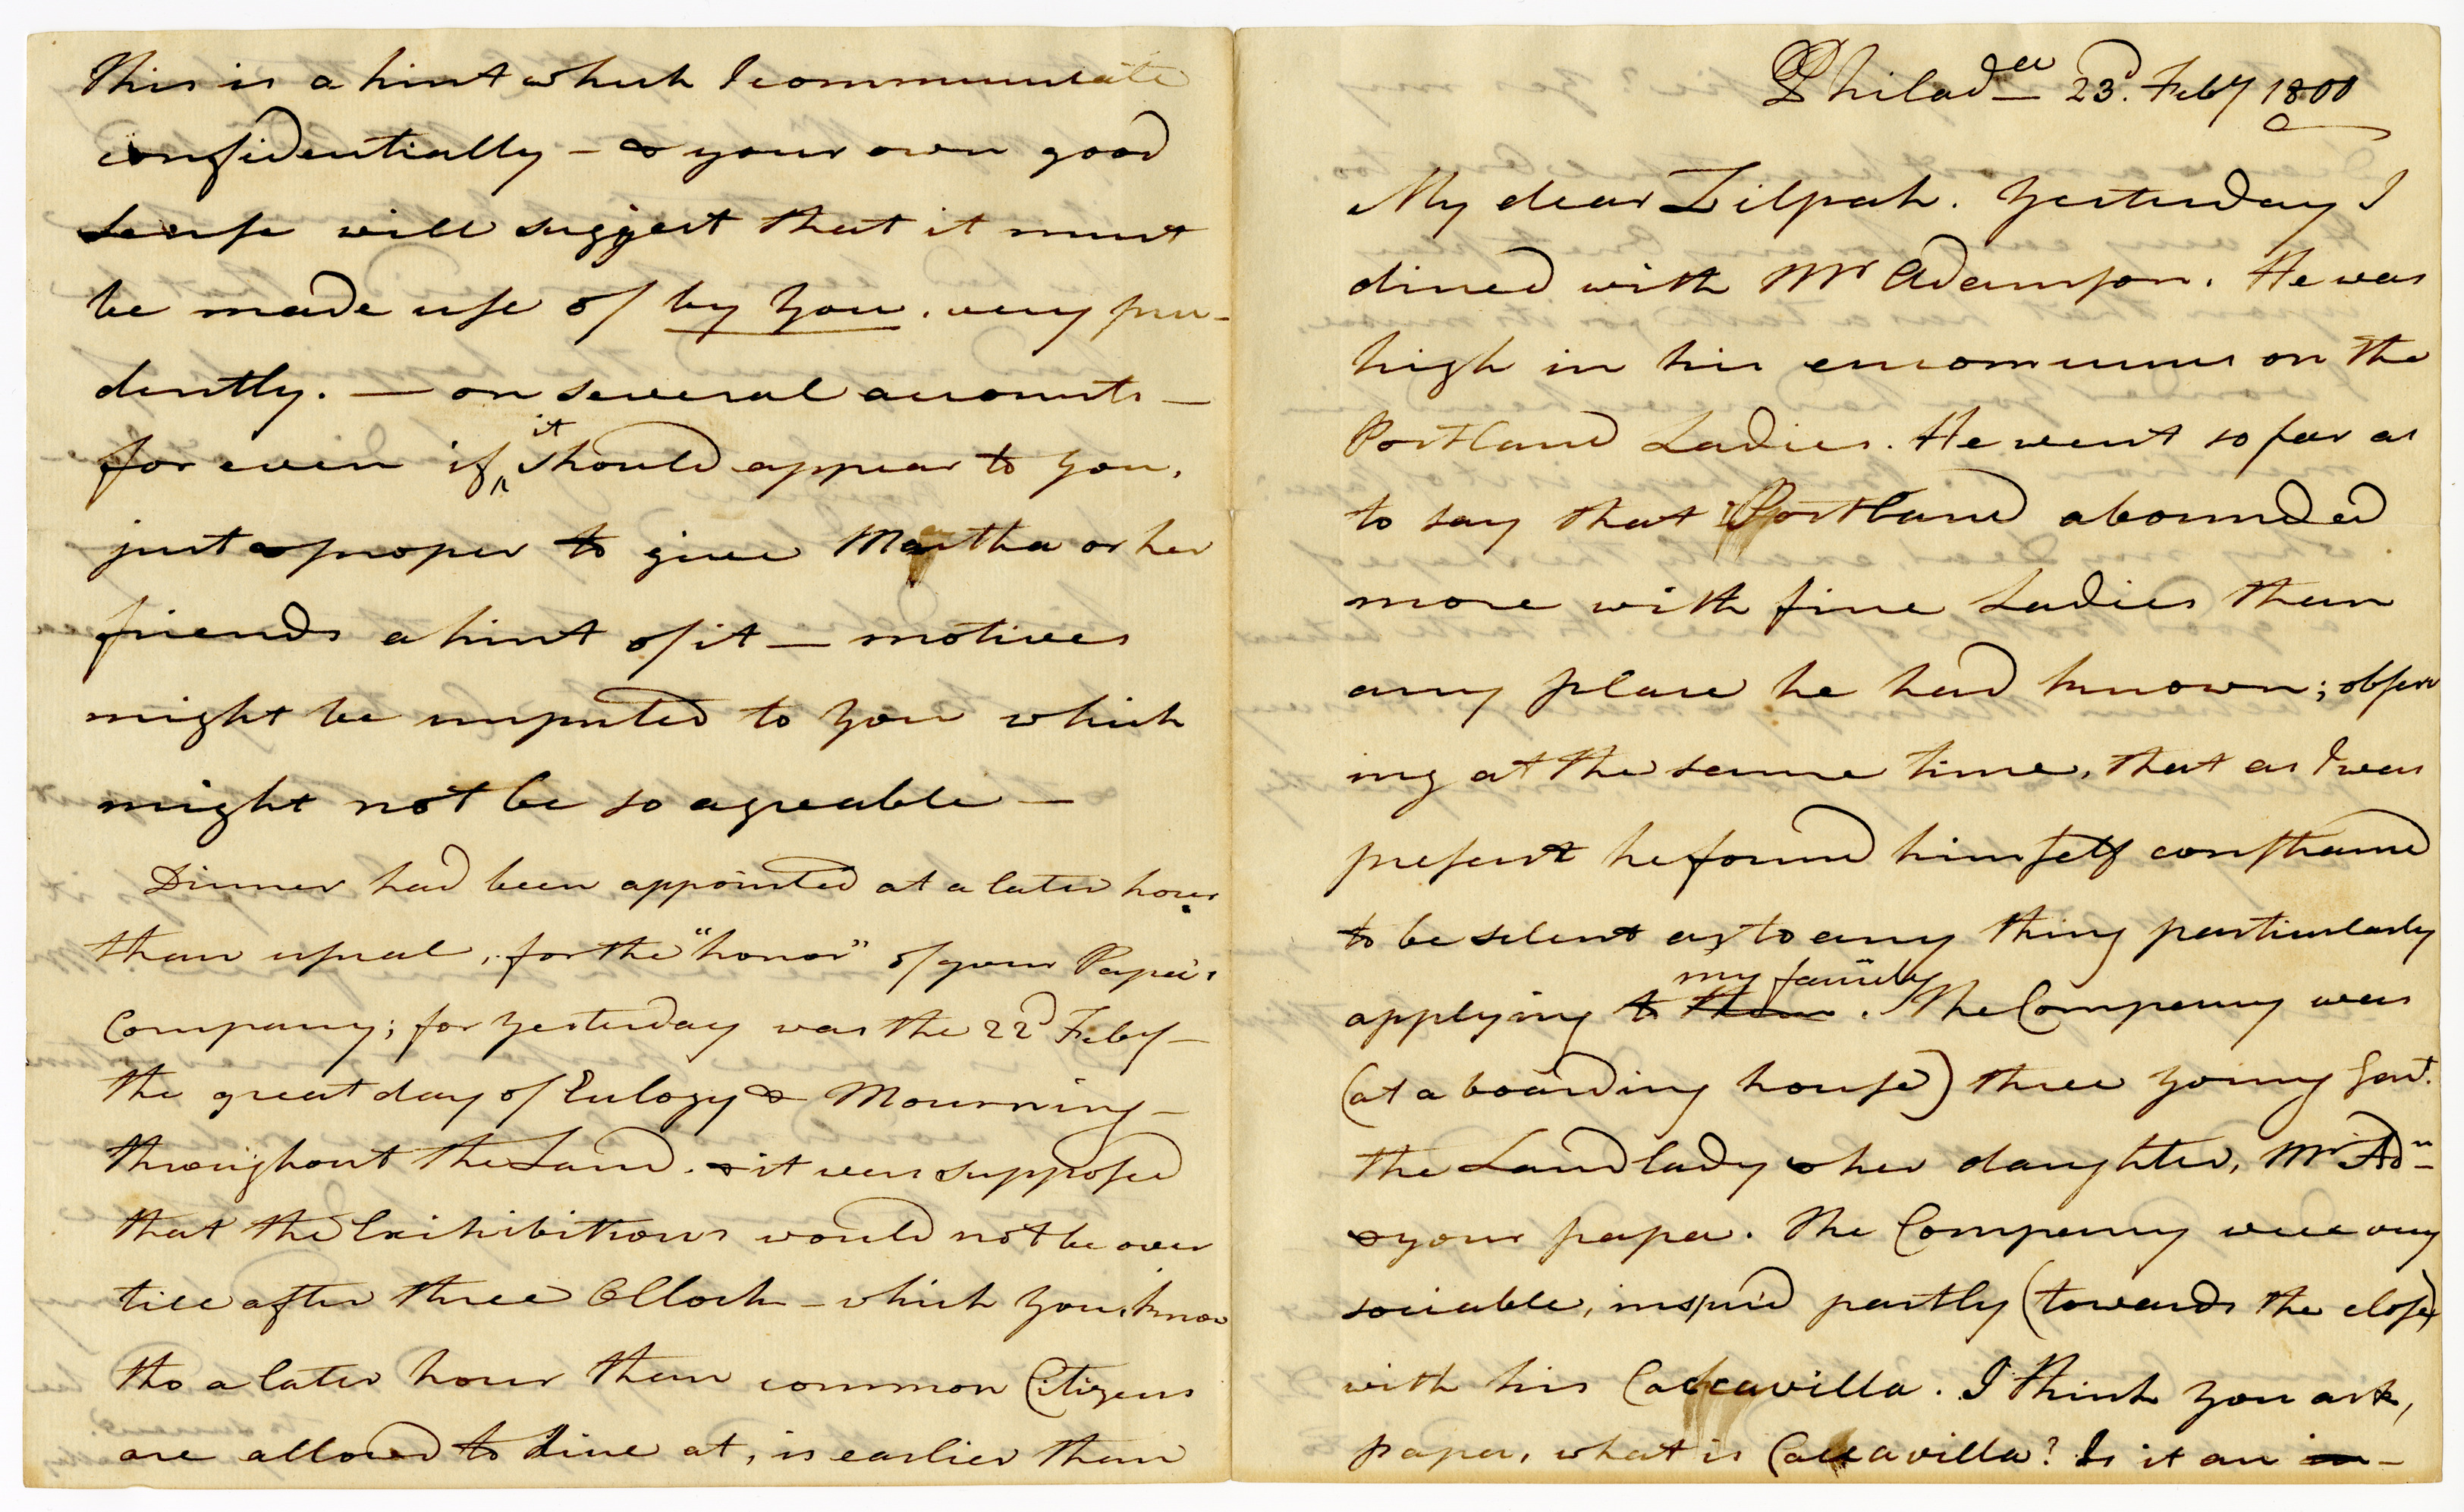 This is a hint which I communicate
confidentially – & your own good
sense will suggest that it must
be made use of by you. very pru-
dently. — on several accounts —
for even if it should appear to you,
just & proper to give Martha or her
friends a hint of it — motives
might be imputed to you which
might not be so agreable —
Dinner had been appointed at a later hour
than usual, for the "honor" of your Papa's
Company; for yesterday was the 22d Feby —
the great day of Eulogy & Mourning —
throughout the Land. & it was supposed
that the Exihibitions would not be over
till after three OClock – which you know
tho a later hour than common Citizens
are allowed to dine at, is earlier than
Philad_ee 23d. Feby 1800
My dear Zilpah. Yesterday I
dined with Mr Adamson. He was
high in his encomiums on the
Portland Ladies. He went so far as
to say that Portland abounded
more with fine Ladies than
any place he had known; observ
ing at the same time, that as I was
present he found himself constrained
to be silent as to any thing particularly
applying to them my family. The Company was
(at a boarding house) three young Gent.
the Landlady & her daughter, Mr Adn
& your papa. The Company were very
sociable, inspir'd partly (towards the close)
with his Calcavilla. I think you ask,
papa, what is Calcavilla? Is it an in-